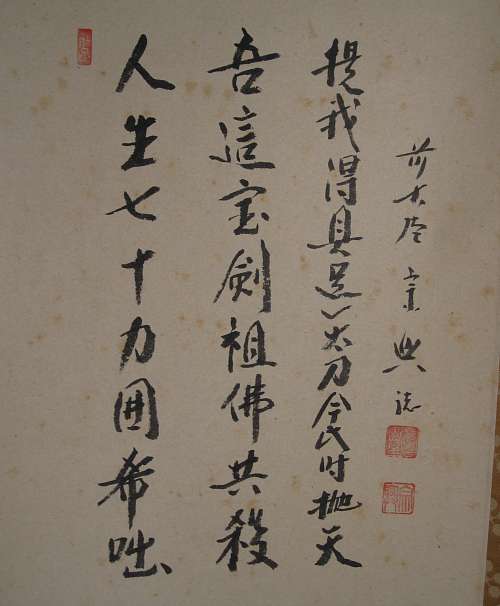 人生七十力囲希咄
吾這宝剣祖佛共殺
提我得具足一太刀今此時抛天
前大徳 宗興 誌